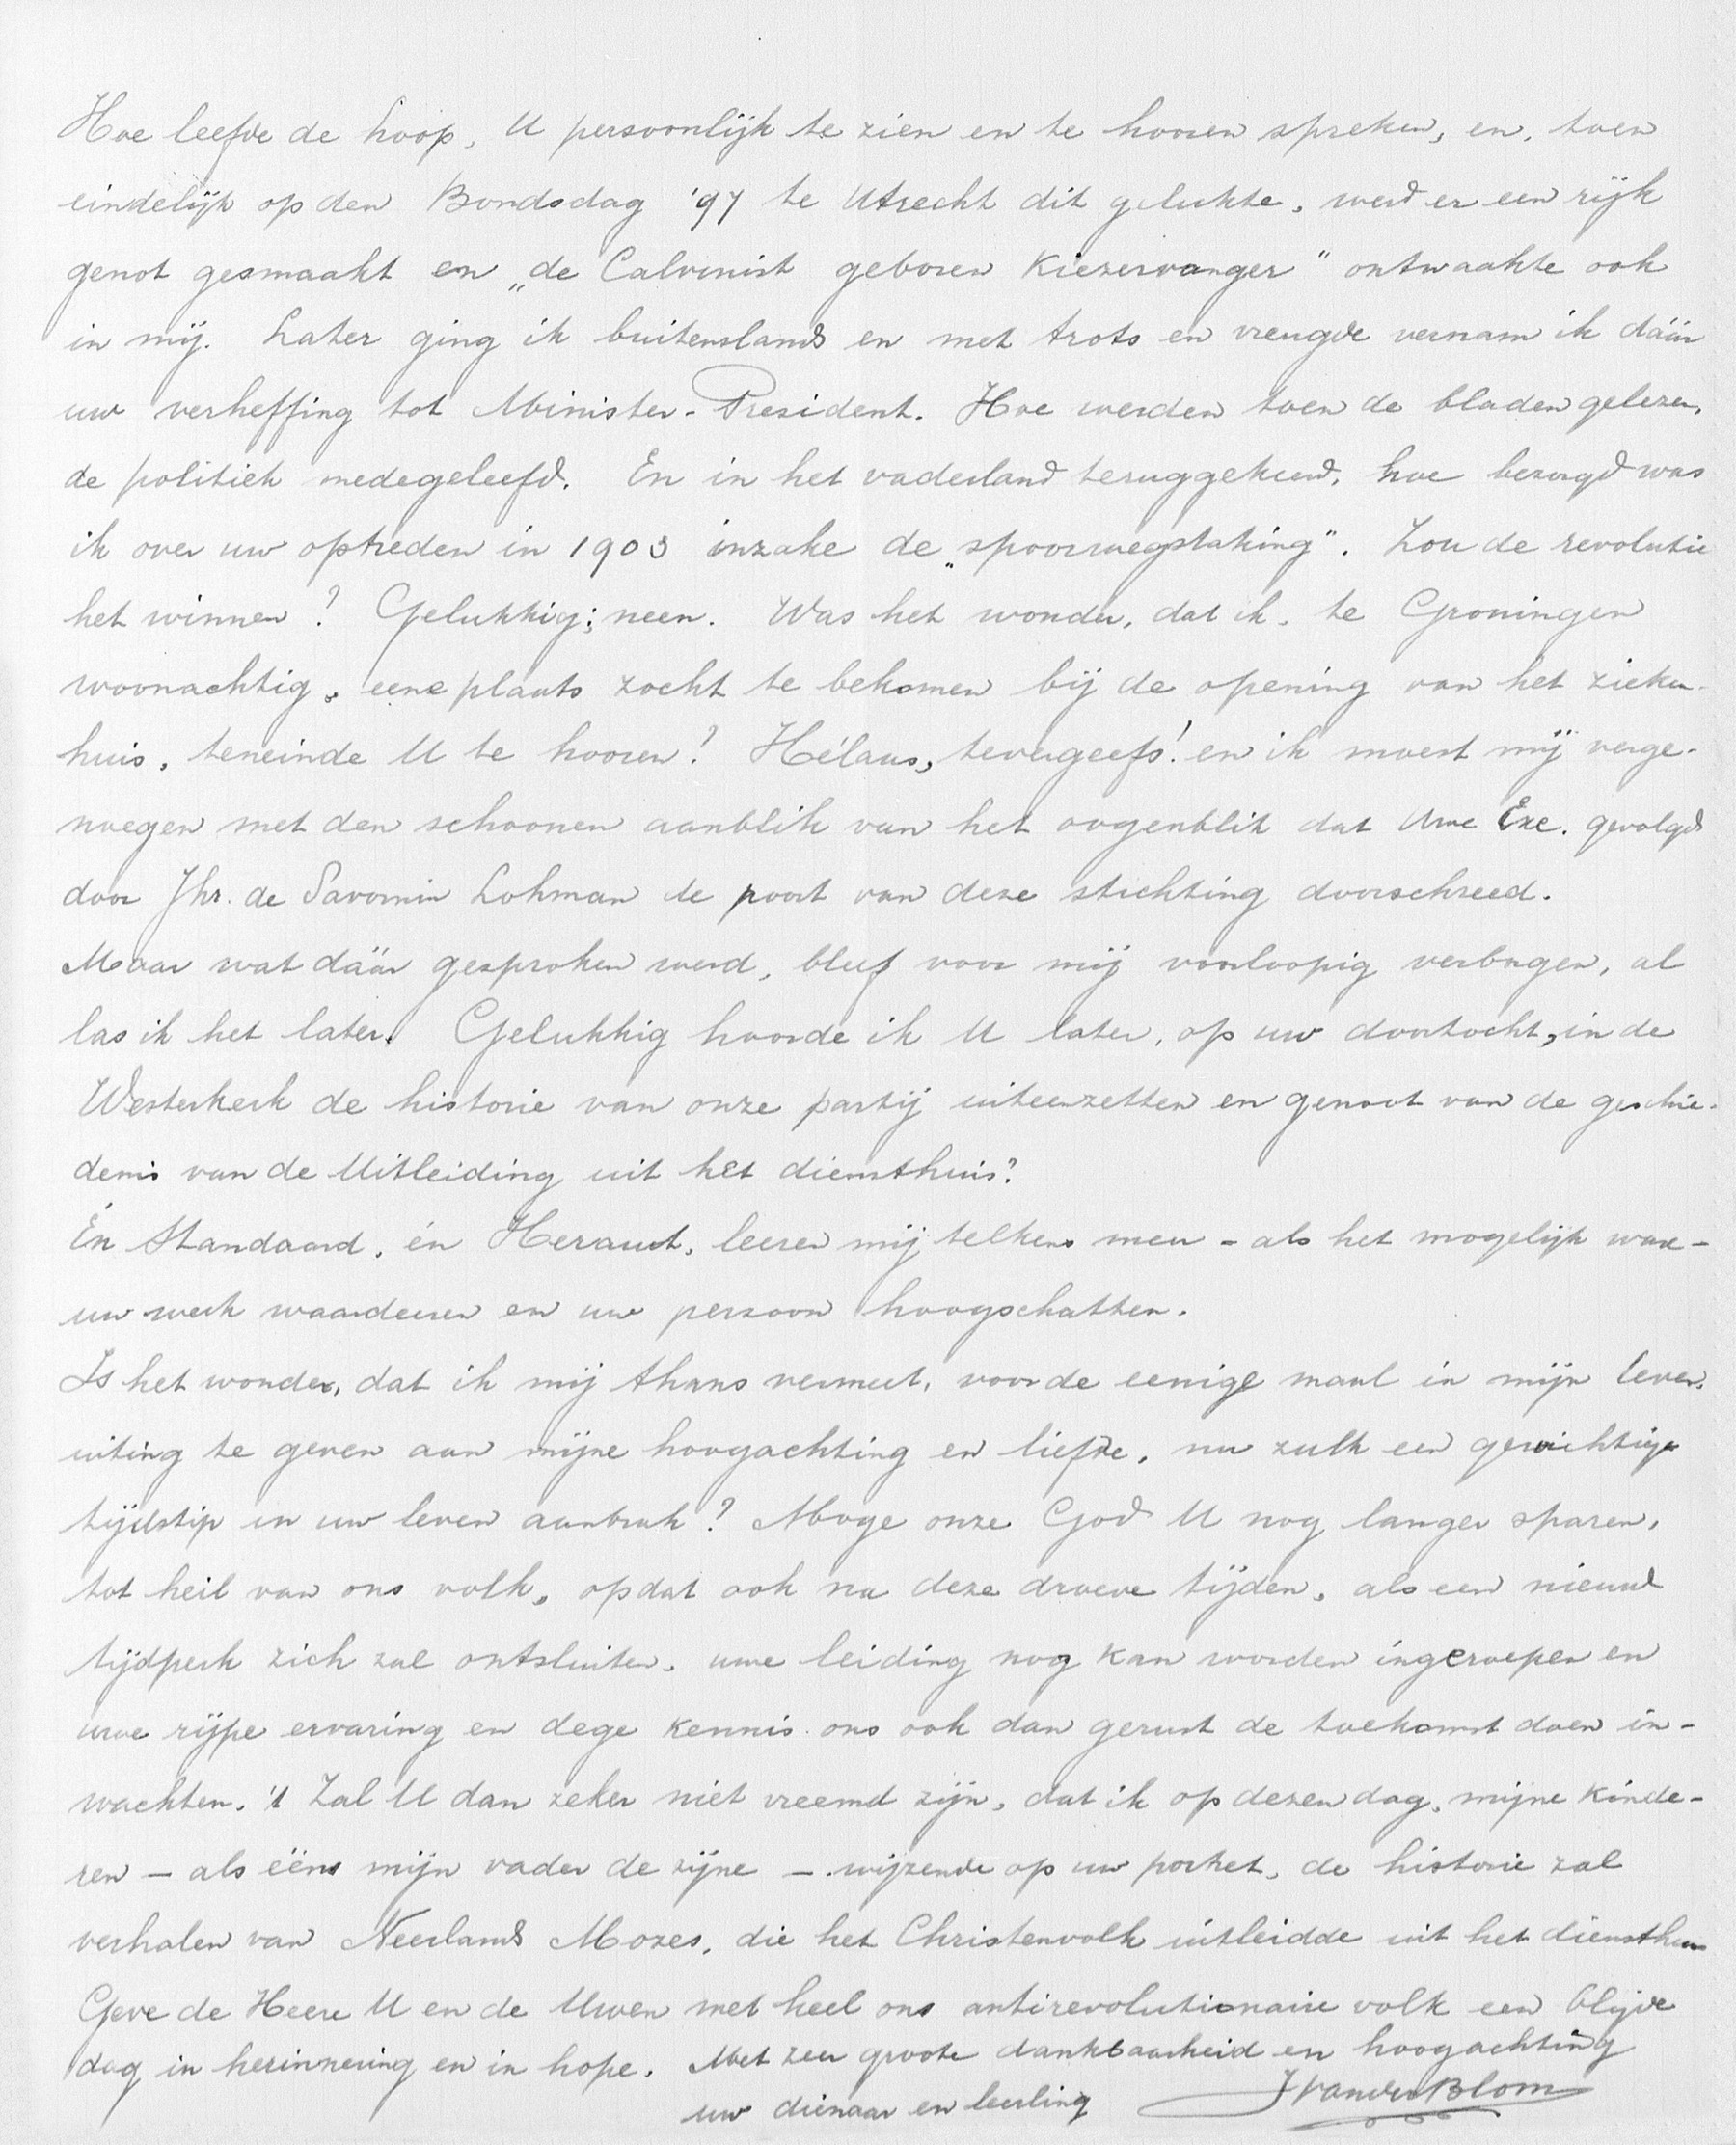 Hoe leefde de hoop, U persoonlijk te zien en te hooren spreken, en, toen
eindelijk op den Bondsdag '97 te Utrecht dit gelukte, werd er een rijk
genot gesmaakt en „de Calvinist geboren Kiezervanger" ontwaakte ook
in mij. Later ging ik buitenslands en met trots en vreugde vernam ik dáár
uw verheffing tot Minister-President. Hoe werden toen de bladen gelezen,
de politiek medegeleefd. En in het vaderland teruggekeerd, hoe bezorgd was
ik over uw optreden in 1903 inzake de „spoorwegstaking". Zou de revolutie
het winnen? Gelukkig; neen. Was het wonder, dat ik, te Groningen
woonachtig, eene plaats zocht te bekomen bij de opening van het zieken-
huis, teneinde U te hooren? Hélaas, tevergeefs! en ik moest mij verge-
noegen met den schoonen aanblik van het oogenblik dat Uwe Exc. gevolgd
door Jhr. de Savornin Lohman de poort van deze stichting doorschreed.
Maar wat dáár gesproken werd, bleef voor mij voorloopig verborgen, al
las ik het later. Gelukkig hoorde ik U later, op uw doortocht, in de
Westerkerk de historie van onze partij uiteenzetten en genoot van de geschie-
denis van de Uitleiding uit het diensthuis!
Én Standaard, én Heraut, leeren mij telkens meer - als het mogelijk ware -
uw werk waardeeren en uw persoon hoogschatten.
Is het wonder, dat ik mij thans vermeet, voor de eenige maal in mijn leven,
uiting te geven aan mijne hoogachting en liefde, nu zulk een gewichtige
tijdstip in uw leven aanbrak? Moge onze God U nog langer sparen,
tot heil van ons volk, opdat ook na deze droeve tijden, als een nieuwe
tijdperk zich zal ontsluiten, uwe leiding nog kan worden ingeroepen en
uwe rijpe ervaring en dege kennis ons ook dan gerust de toekomst doen in-
wachten. 't Zal U dan zeker niet vreemd zijn, dat ik op dezen dag, mijne kinde-
ren - als ééns mijn vader de zijne - wijzende op uw portret, de historie zal
verhalen van Neerlands Mozes, die het Christenvolk uitleidde uit het diensthuis
Geve de Heere U en de Uwen met heel ons antirevolutionaire volk een blijde
dag in herinnering en in hope. Met zeer groote dankbaarheid en hoogachting
uw dienaar en leerling J van der Blom